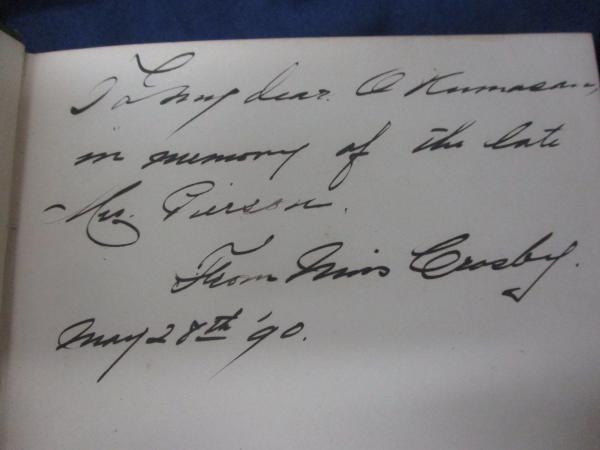 To My dear O Kumasan,
in memory of the late
Mrs. Pierson.
From Miss Crosby.
May 28th '90.